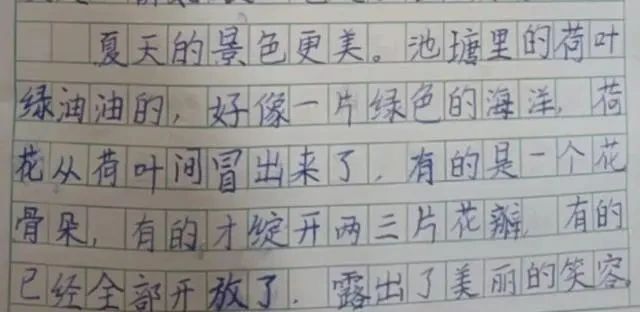 夏天的景色更美。池塘里的荷叶
绿油油的，好像一片绿色的海洋，荷
花从荷叶间冒出来了，有的是一个花
骨朵，有的才绽开两三片花瓣，有的
已经全部开放了，露出了美丽的笑容。